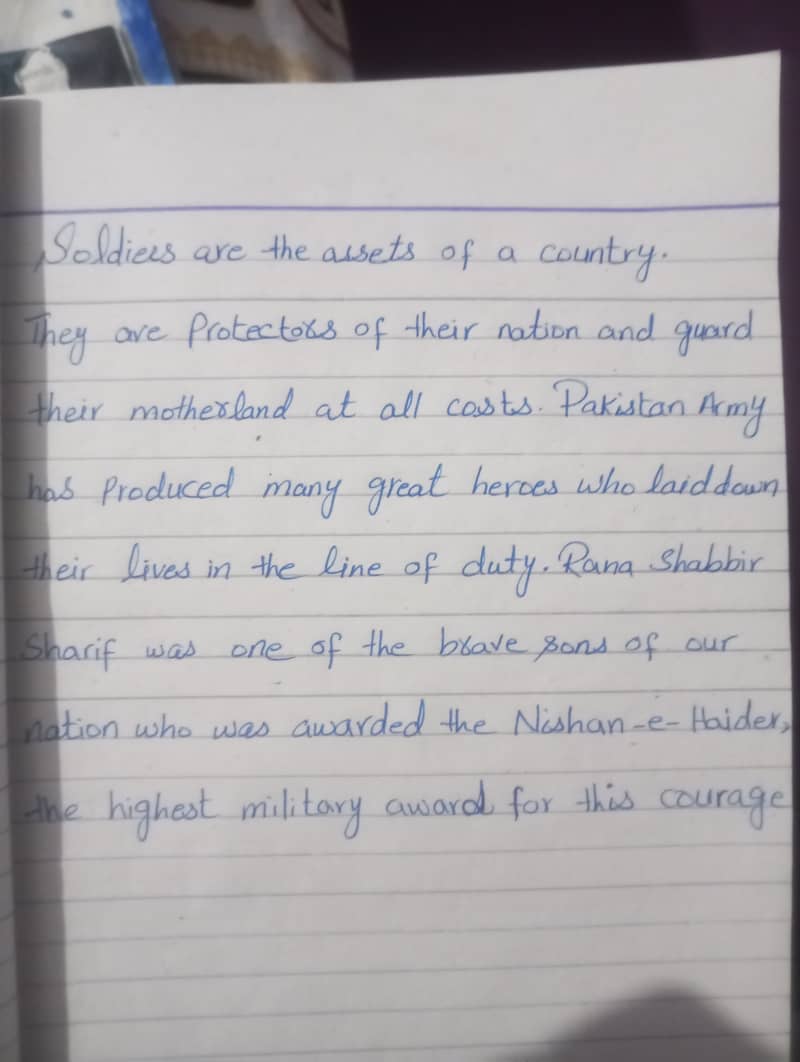 Soldiers are the assets of a country.
They are Protectors of their nation and guard
their motherland at all costs. Pakistan Army
has Produced many great heroes who laid down
their lives in the line of duty. Rana Shabbir
Sharif was one of the brave sons of our
nation who was awarded the Nishan-e-Haider,
the highest military award for this courage